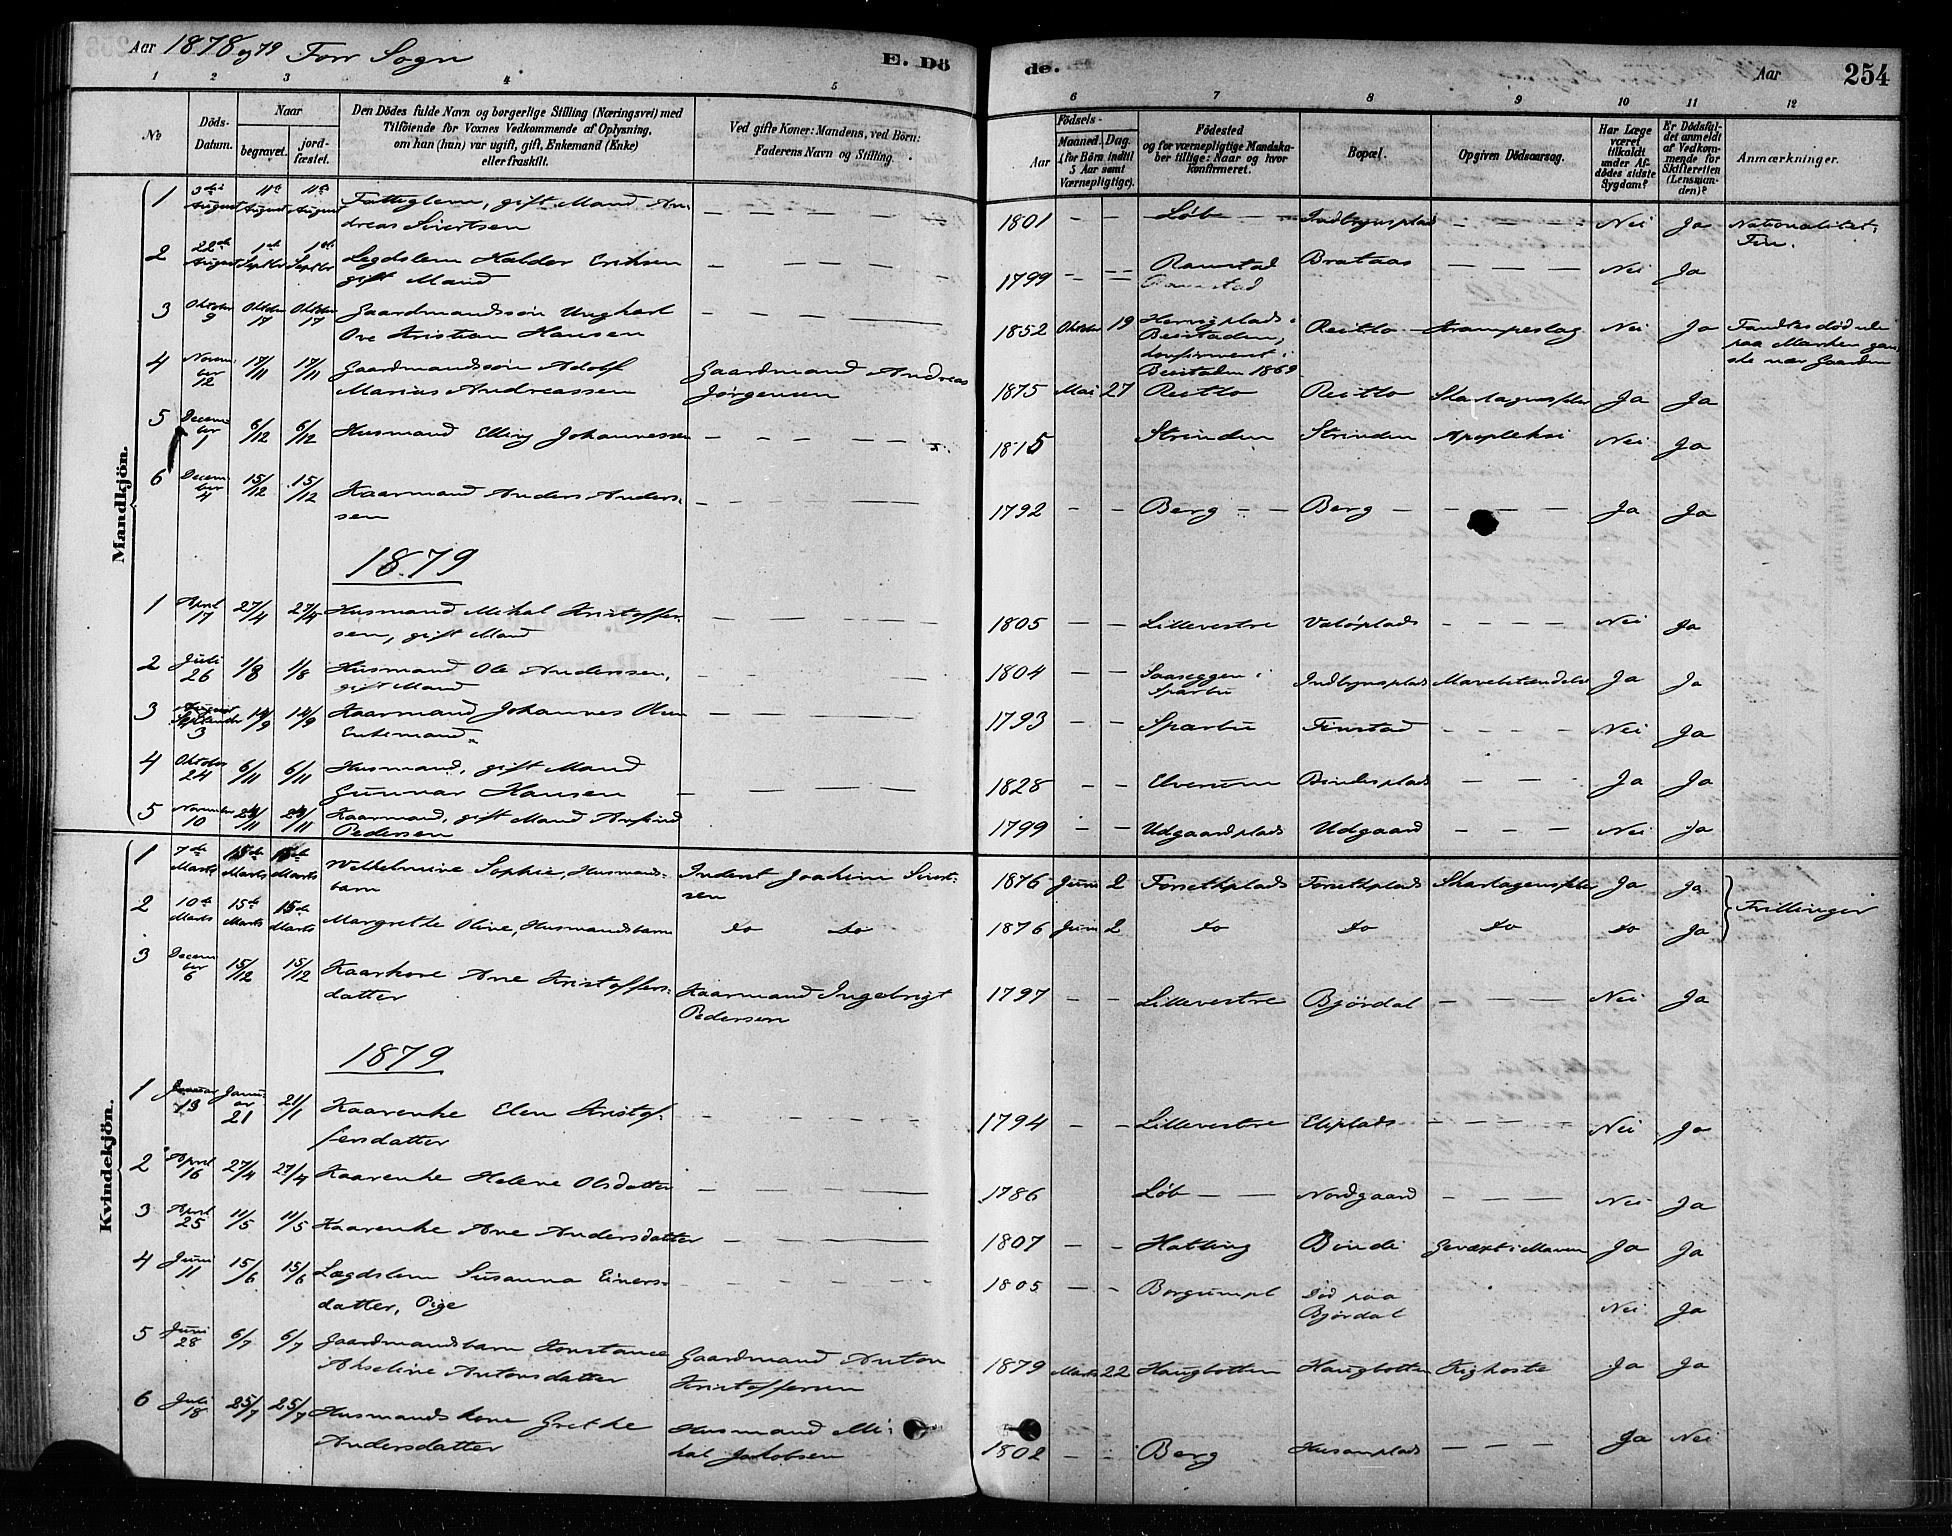 Aar 1878 og 79 For Sogn E. Dö de. Aar 254
1 2 3 4 5 6 7 8 9 10 11 12
No
Döds-Datum.
Naar
begravet.
jord-fæstet.
Den Dödes fulde Navn og borgerlige Stilling (Næringsvei) med
Tilföiende for Voxnes Vedkommende af Oplysning,
om han (hun) var ugift, gift, Enkemand (Enke)
eller fraskilt.
Ved gifte Koner: Mandens, ved Börn:
Faderens Navn og Stilling.
Födsels-
Aar
Maaned. Dag.
(for Börn indtil
5 Aar samt
Værnepligtige).
Födested
og for værnepligtige Mandska-
ber tillige: Naar og hvor
konfirmeret.
Bopæl.
Opgiven Dödsaarsag.
Har Læge
været
tilkaldt
under Af-
dödes sidste
Sygdom?
Er Dödsfal-
det anmeldt
af Vedkom-
mende for
Skifteretten
(Lensman-
den)?
Anmærkninger.
Mandkjön.
1 3die August 11te August 11te August Fattiglem, gift Mand An-
dreas Sivertsen 1801 Løb Indbynsplad Nei Ja Nationalitet:
Fin.
2 22de August 1ste Septbr 1ste Septbr Legdslem Haldor Eriksen
gift Mand 1799 Ramstad Brataas Nei Ja
3 Oktober 9 Oktober 17 Oktober 17 Gaardmandssøn Ungkarl
Ove Kristian Hansen 1852 Oktober 19 Beistaden,
konfirmeret i
Beistaden 1869 Reitlo Krampeslag Nei Ja Fandtes død ude
paa Marken gan-
ske nær Gaarden
4 Novem-
ber
12 17/11 17/11 Gaardmandssøn Adolf
Marius Andreassen Gaardmand Andreas
Jørgensen 1875 Mai 27 Reitlo Reitlo Skarlagensfeber Ja Ja
5 Decem-
ber
1 6/12 6/12 Husmand Elling Johannessen 1815 Strinden Strinden Apopleksi Nei Ja
6 Decem-
ber
4 15/12 15/12 Kaarmand Anders Anders-
sen 1792 Berg Berg Ja Ja
1879
1 April
17 27/4 27/4 Husmand Mikal Kristoffer-
sen, gift Mand 1805 Lillevestre Valøplads Nei Ja
2 Juli
26 1/8 1/8 Husmand Ole Anderssen,
gift Mand 1804 Saaseggen i
Sparbu Indbynsplads Ja Ja
3 September
3 14/9 14/9 Kaarmand Johannes Olsen
Enkemand 1793 Sparbu Finstad Nei Ja
4 Oktober
24 6/11 6/11 Husmand, gift Mand
Gunnar Hansen 1828 Elverum Bindesplads Ja Ja
5 November
10 Kaarmand, gift Mand Arnfind
Pedersen 1799 Udgaardplads Udgaard Nei Ja
Kvindekjön.
1 7de
Marts 15de Marts 15de Marts Wilhelmine Sophie, Husmands-
barn Inderst Joachim Sivert-
sen 1876 Juni 2 Forsethplads Forsethplads Skarlagensfeber Ja Ja
2 10de
Marts 15de Marts 15de Marts Margrethe Oline, Husmandsbarn do do 1876 Juni 2 do do do do Ja Trillinger
3 Decem-
ber
6 15/12 15/12 Kaarkone Ane Kristoffers-
datter Kaarmand Ingebrigt
Pedersen 1797 Lillevestre Bjørdal Nei Ja
1879
1 Januar
13 Janu-
ar
21 21/1 Kaarenke Elen Kristof-
fersdatter 1794 Lillevestre Eliplads Nei Ja
2 April
16 27/4 27/4 Kaarenke Helene Olsdatter 1786 Løb Nordgaard Nei Ja
3 April
25 11/5 11/5 Kaarenke Ane Andersdatter 1807 Hatling Binde Gevæxt i Maven Ja Ja
4 Juni
11 15/6 15/6 Lægdslem Susanna Einers-
datter, Pige 1805 Borgumpl Død paa
Bjørdal Nei Ja
5 Juni
28 6/7 6/7 Gaardmandsbarn Konstance
Akseline Antonsdatter Gaardmand Anton
Kristoffersen 1879 Marts 22 Haugbotten Haugbotten Kighoste Ja Ja
6 Juli
18 25/7 25/7 Husmandskone Grethe
Andersdatter Husmand Mi-
kal Jakobsen 1802 Berg Husanplads Ja Nei